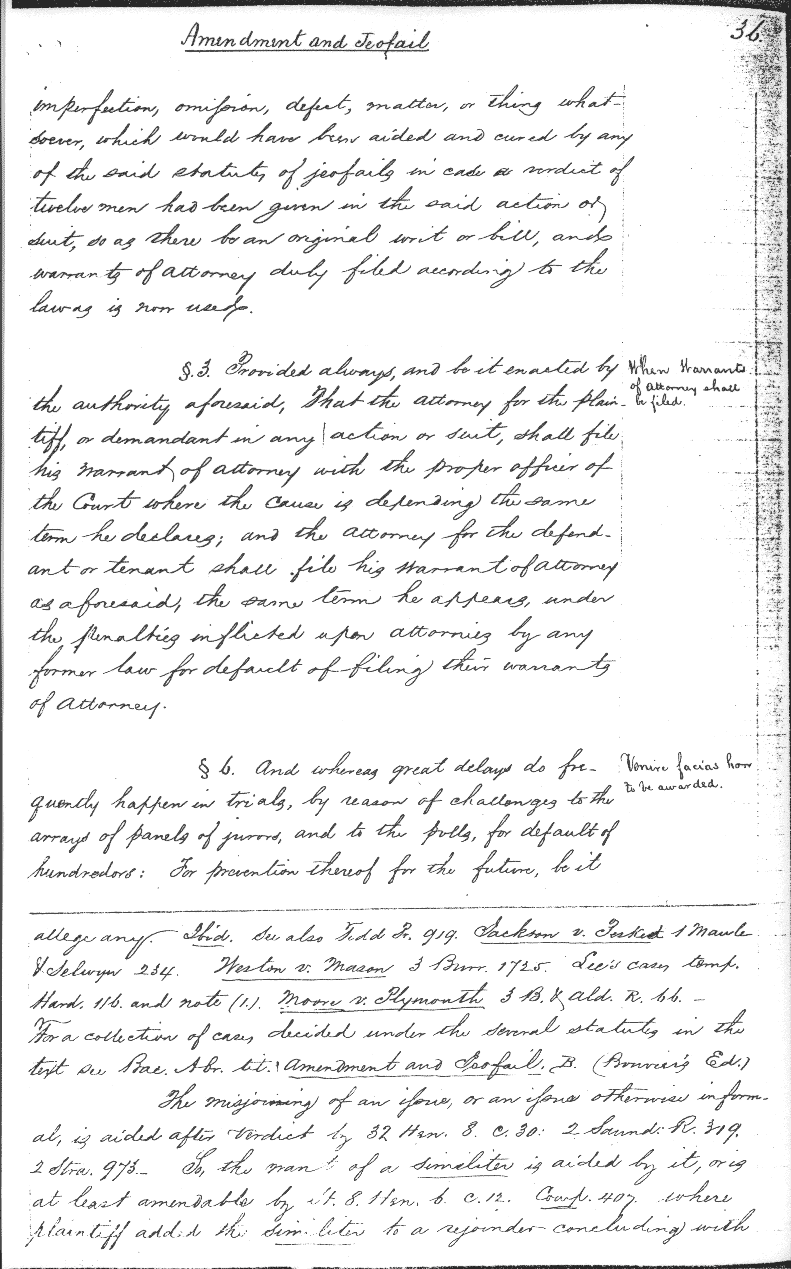 Amendment and Jeofail
36.
imperfection, omission, defect, matter, or thing what-
soever, which would have been aided and cured by any
of the said statutes of jeofails in case a verdict of
twelve men had been given in the said action or
suit, so as there be an original writ or bill, and
warrants of attorney duly filed according to the
law as is now used.
§.3. Provided always, and be it enacted by
the authority aforesaid, That the attorney for the plain-
tiff, or demandant in any action or suit, shall file
his warrant of attorney with the proper officer of
the Court where the cause is depending the same
term he declares; and the attorney for the defend-
ant or tenant shall file his warrant of attorney
as aforesaid, the same term he appears, under
the penalties inflicted upon attornies by any
former law for default of filing their warrants
of attorney.
When Warrants
of attorney shall
be filed.
§ 6. And whereas great delays do fre-
quently happen in trials, by reason of challenges to the
arrays of panels of jurors, and to the polls, for default of
hundredors: For prevention thereof for the future, be it
Venire facias how
to be awarded.
allege any. Ibid. See also Tidd Pr. 919. Jackson v. 1 Maule
& Selwyn 234. Weston v. Mason 3 Burr. 1725. Lee's cases temp.
Hard. 116. and note (1.) Moore v. Plymouth 3 B. & Ald. R. 66. -
For a collection of cases decided under the several statutes in the
text see Bac. Abr. tit. Amendment and Jeofail. B. (Bouvier's Ed.)
The misjoining of an issue, or an issue otherwise inform-
al, is aided after verdict by 32 Hen. 8. c. 30: 2 Saund. R. 319.
2 Stra. 973. - So, the want of a similiter is aided by it, or is
at least amendable by it. 8. Hen. 6. c. 12. Cowp. 407. where
plaintiff added the similiter to a rejoinder concluding with